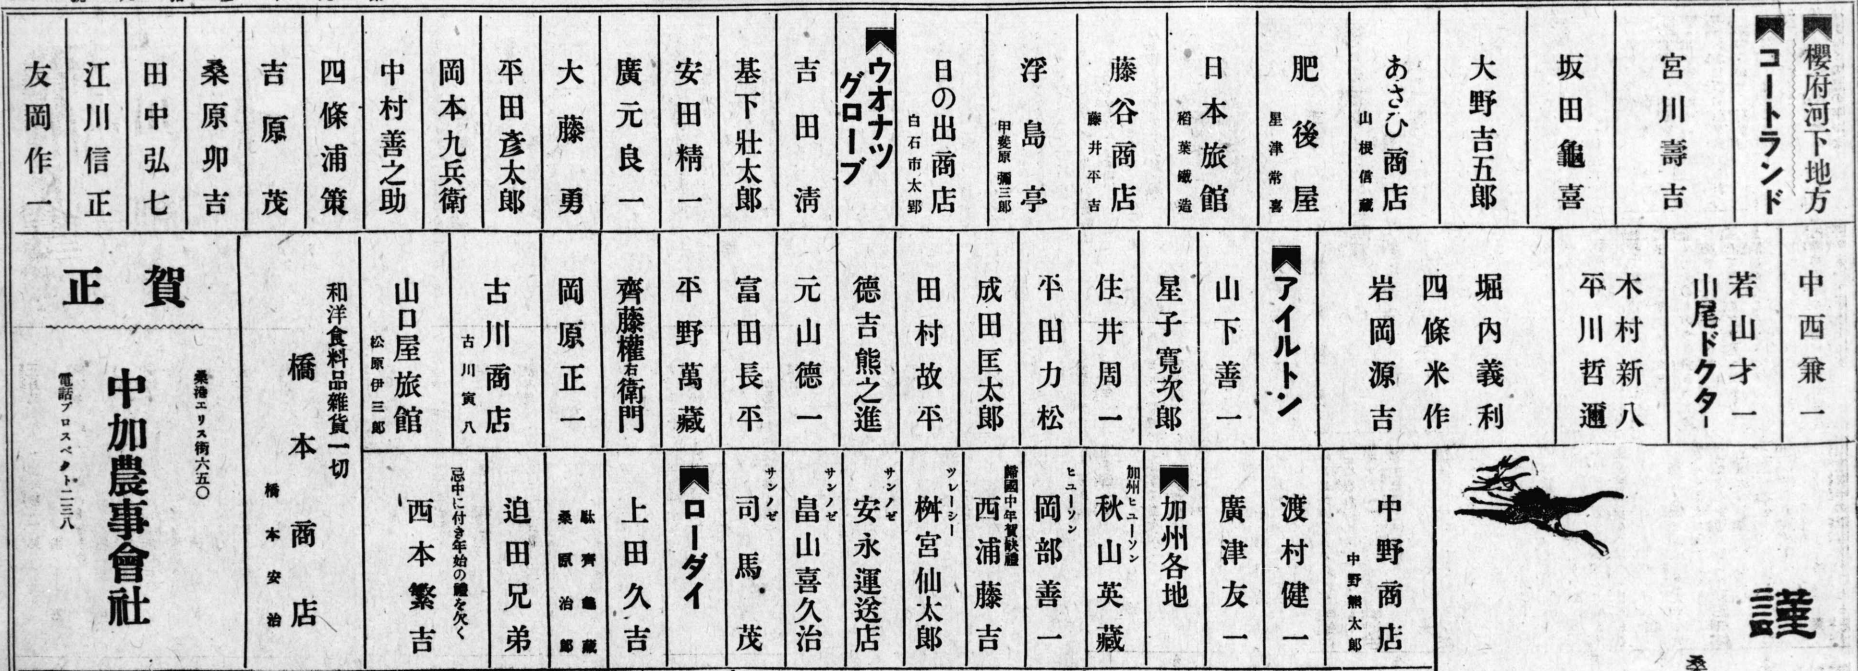 櫻府河下地方
コートランド
宮川壽吉
坂田龜喜
大野吉五郎
あさひ商店
山根信藏
肥後屋
星津常喜
日本旅館
稻葉磯造
藤谷商店
藤井平吉
浮島亭
甲斐原彌三郎
日の出商店
白石市太郎
ウオナツ
グローブ
吉田淸
基下壯太郎
安田精一
廣元良一
大藤勇
平田彥太郎
岡本九兵衛
中村善之助
四條浦策
吉原茂
桑原卯吉
田中弘七
江川信正
友岡作一
中西兼一
若山才一
山尾ドクター
木村新八
平川哲邇
堀內義利
四條米作
岩岡源吉
アイルトン
山下善一
星子寬次郎
住井周一
平田力松
成田匡太郎
田村故平
德吉熊之進
元山德一
富田長平
平野萬藏
齊藤權右衛門
岡原正一
古川商店
古川寅八
山口屋旅館
松原伊三郎
和洋食料品雜貨一切
橋本商店
橋本安治
賀正
桑港エリス街六五〇
中加農事會社
電話プロスペクト二三八
中野商店
中野熊太郎
渡村健一
廣津友一
加州各地
加州ヒユーソン
秋山英藏
ヒユーソン
岡部善一
歸國中年賀缺禮
西浦藤吉
ツレーシー
桝宮仙太郎
サンノゼ
安永運送店
サンノゼ
畠山喜久治
サンノゼ
司馬茂
ローダイ
上田久吉
駄齊龜藏
桑原治郎
迫田兄弟
忌中に付き年始の禮を欠く
西本繁吉
謹
桑